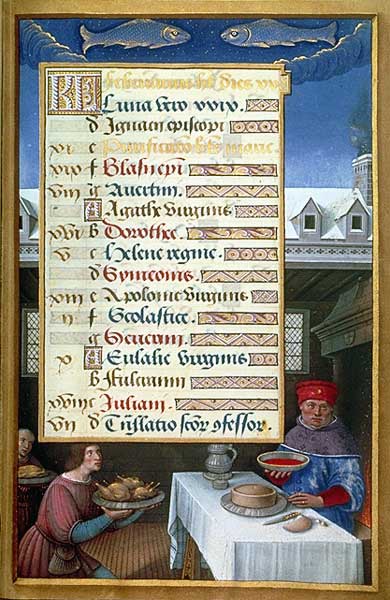 KL Februarius h[abe]t dies xxv
Luna vero xxix.
d Ignacii episcopi
xi e Purificatio be marie
xix f Blasii epi
viii g Aventini.
A Agathe virginis
xvi b Dorothee.
v c Helene regine.
d Symeonis.
xiii e Apolonie virginis
ii f Scolastice.
g
x A Eulalie virginis
b
xviii c Juliani.
vii d Trslatio